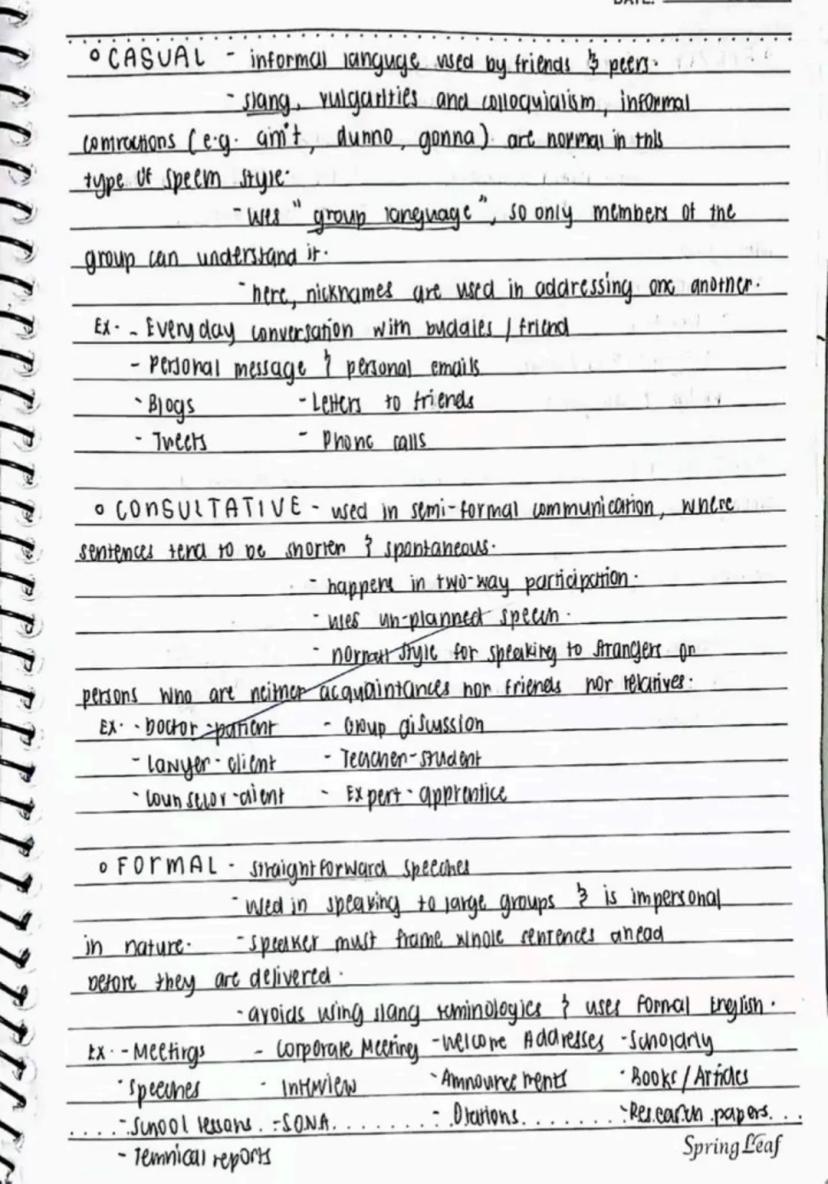 DATE:
° CASUAL - informal languge used by friends & peers.
- slang, vulgarities and colloquialism, informal
contractions (e.g. ain't, dunno, gonna) are normal in this
type of speech style.
- uses "group language", so only members of the
group can understand it.
- here, nicknames are used in addressing one another.
Ex. - Everyday conversation with buddies / friend
- Personal message & personal emails
- Blogs - Letters to friends
- Tweets - Phone calls
° CONSULTATIVE - used in semi-formal communication, where
sentences tend to be shorten & spontaneous.
- happens in two-way participation.
- uses un-planned speech.
- normal style for speaking to strangers or
persons who are neither acquaintances nor friends nor relatives.
Ex. - Doctor - patient - Group discussion
- Lawyer - client - Teacher-student
- Counselor-client - Expert - apprentice
° FORMAL - straightforward speeches
- used in speaking to large groups & is impersonal
in nature. - speaker must frame whole sentences ahead
before they are delivered.
- avoids using slang terminologies & uses formal English.
Ex. - Meetings - Corporate Meeting - Welcome Addresses - Scholarly
- Speeches - Interview - Announcements - Books / Articles
- School lessons - SONA - Orations - Research papers
- Technical reports
Spring Leaf